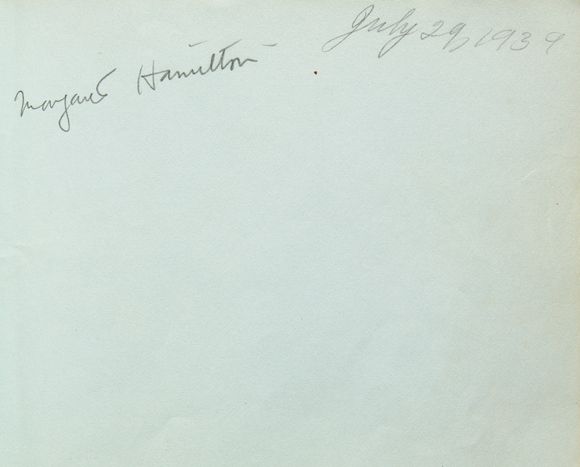 July 29, 1939
Margaret Hamilton